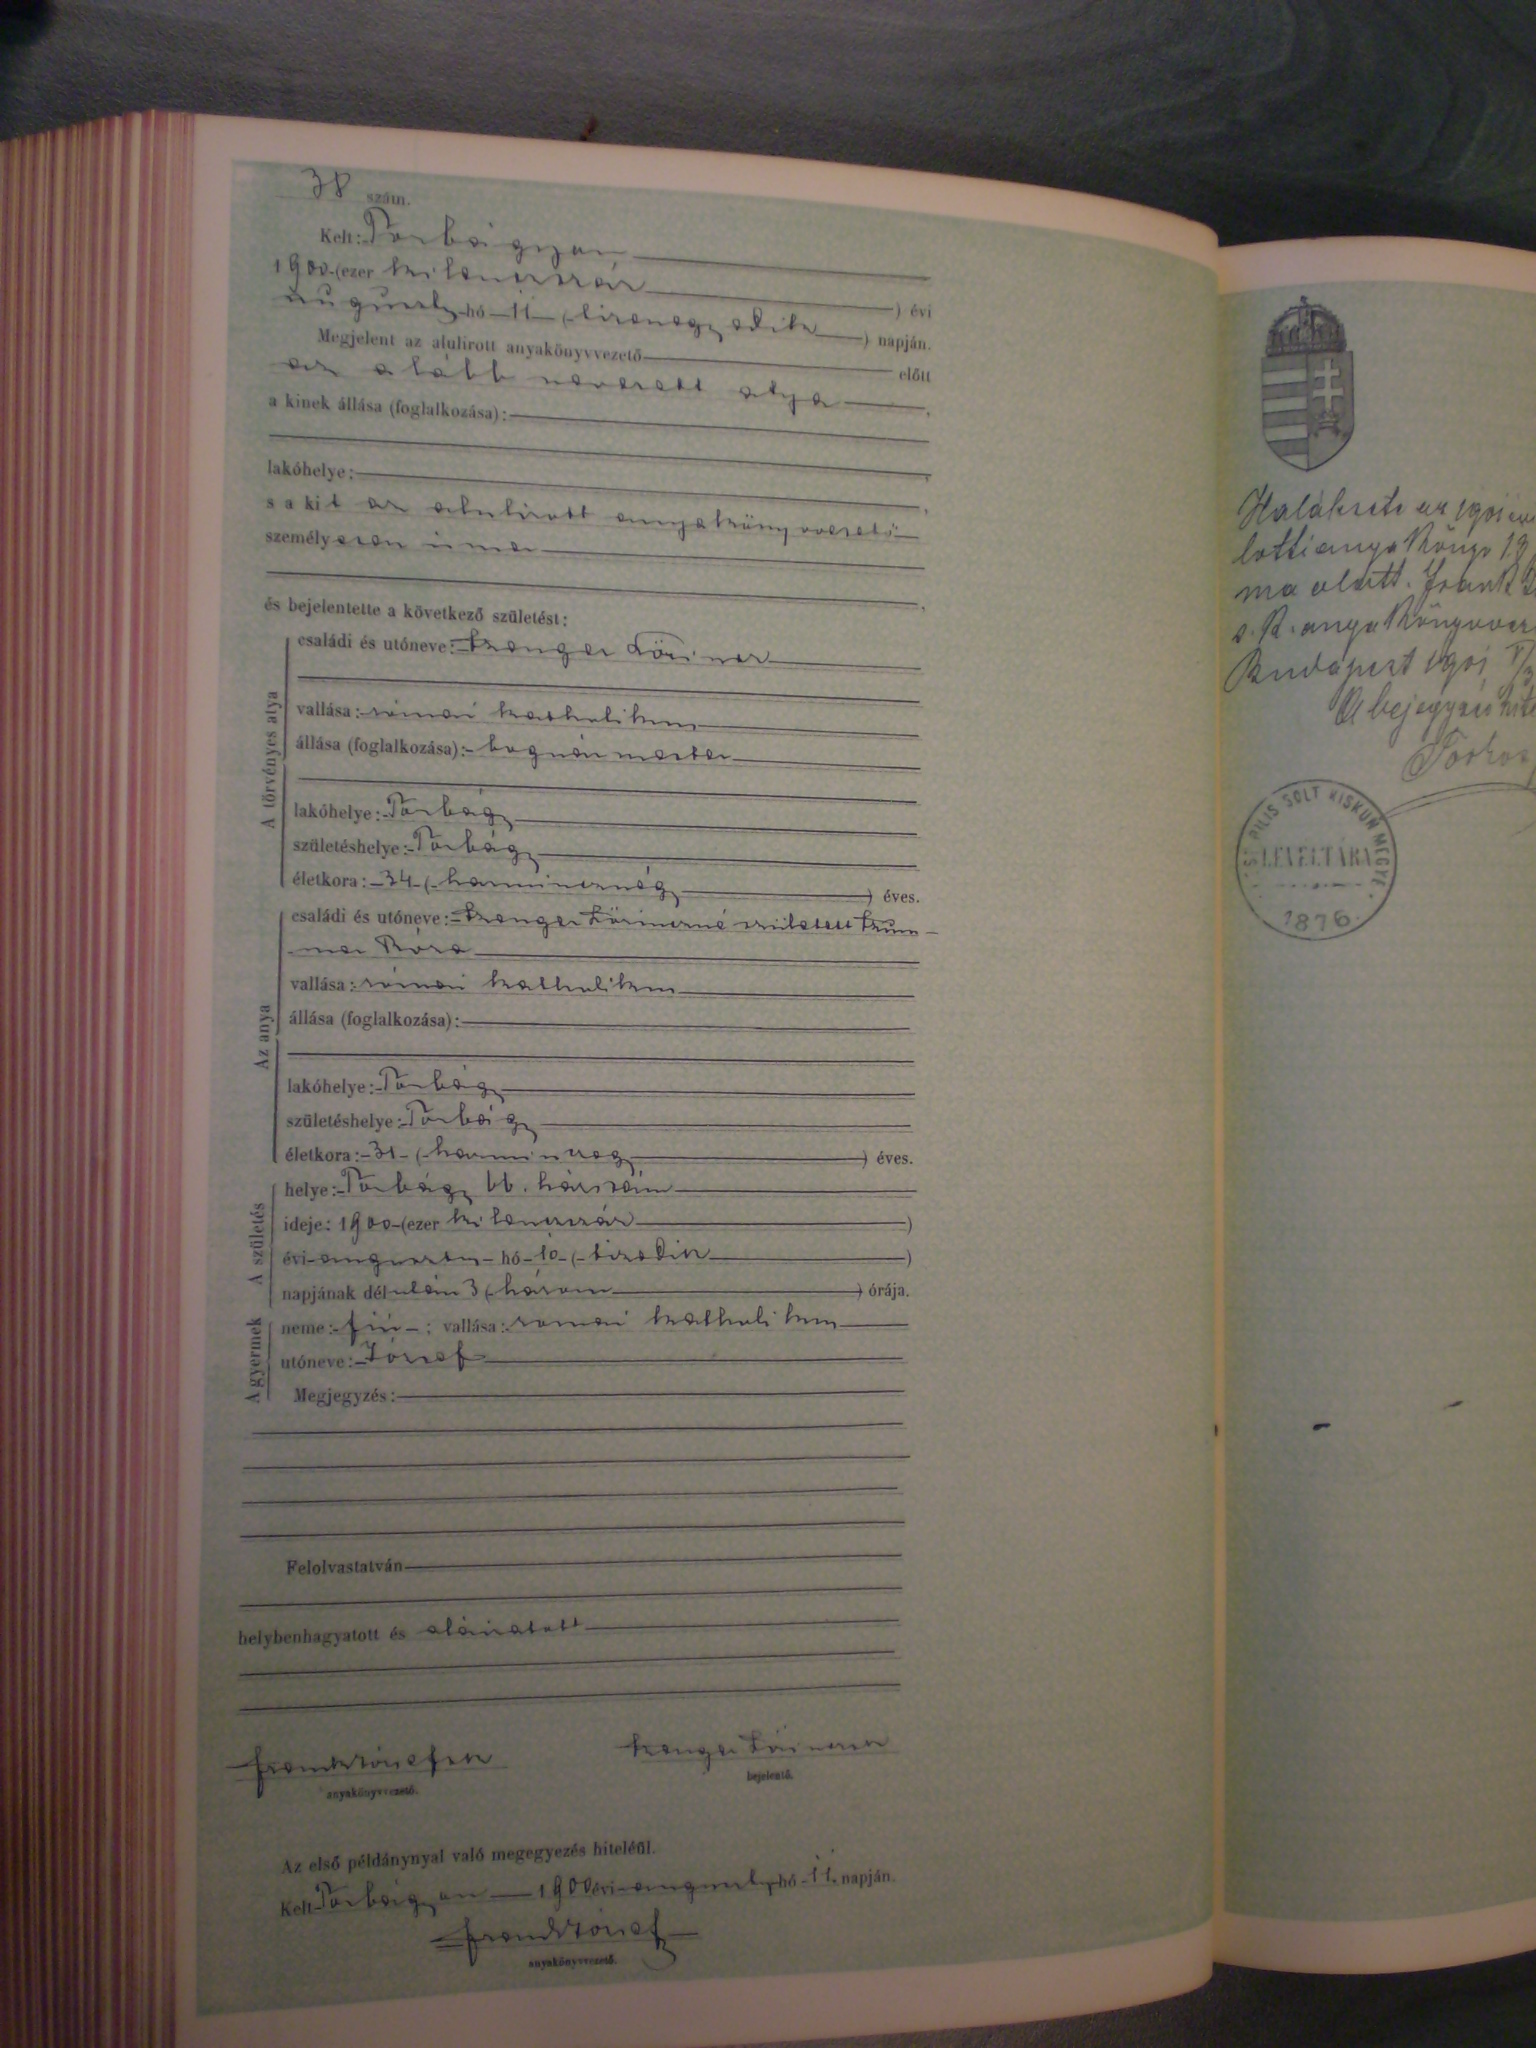 38 szám.
Kelt: Torbágyon
1900 (ezer kilencszáz ) évi
auguszt hó 11 (tizenegyedik ) napján.
Megjelent az alulirott anyakönyvvezető előtt
az alább nevezett atya ,
a kinek állása (foglalkozása):
lakóhelye:
s a kit az alulirott anyakönyvvezető
személyesen ismer
és bejelentette a következő születést:
A törvényes atya
családi és utóneve: Lőrincz
vallása: római katholikus
állása (foglalkozása): bognár mester
lakóhelye: Torbágy
születéshelye: Torbágy
életkora: 34 (harmincznégy ) éves.
Az anya
családi és utóneve: Lőrinczné született
Róza
vallása: római katholikus
állása (foglalkozása):
lakóhelye: Torbágy
születéshelye: Torbágy
életkora: 31 (harminczegy ) éves.
A születés
helye: Torbágy 66. házszám
ideje: 1900 (ezer kilencszáz )
évi augusztus hó 10 (tizedik )
napjának délután 3 (három ) órája.
A gyermek
neme: fiú ; vallása: romai katholikus
utóneve: József
Megjegyzés:
Felolvastatván
helybenhagyatott és aláiratott
Frank József sk
anyakönyvvezető.
Lőrincz sk
bejelentő.
Az első példánynyal való megegyezés hiteléül.
Kelt Torbágyon 1900 évi auguszt hó 11. napján.
Frank József
anyakönyvvezető.
Halálesete az 1901 évi
lotti anyakönyv 18
ma alatt. Frank
s. k. anyakönyvvez
Budapest 1901
A bejegyzés hite
PILIS SOLT KISKUN MEGYE
LEVÉLTÁRA
1876